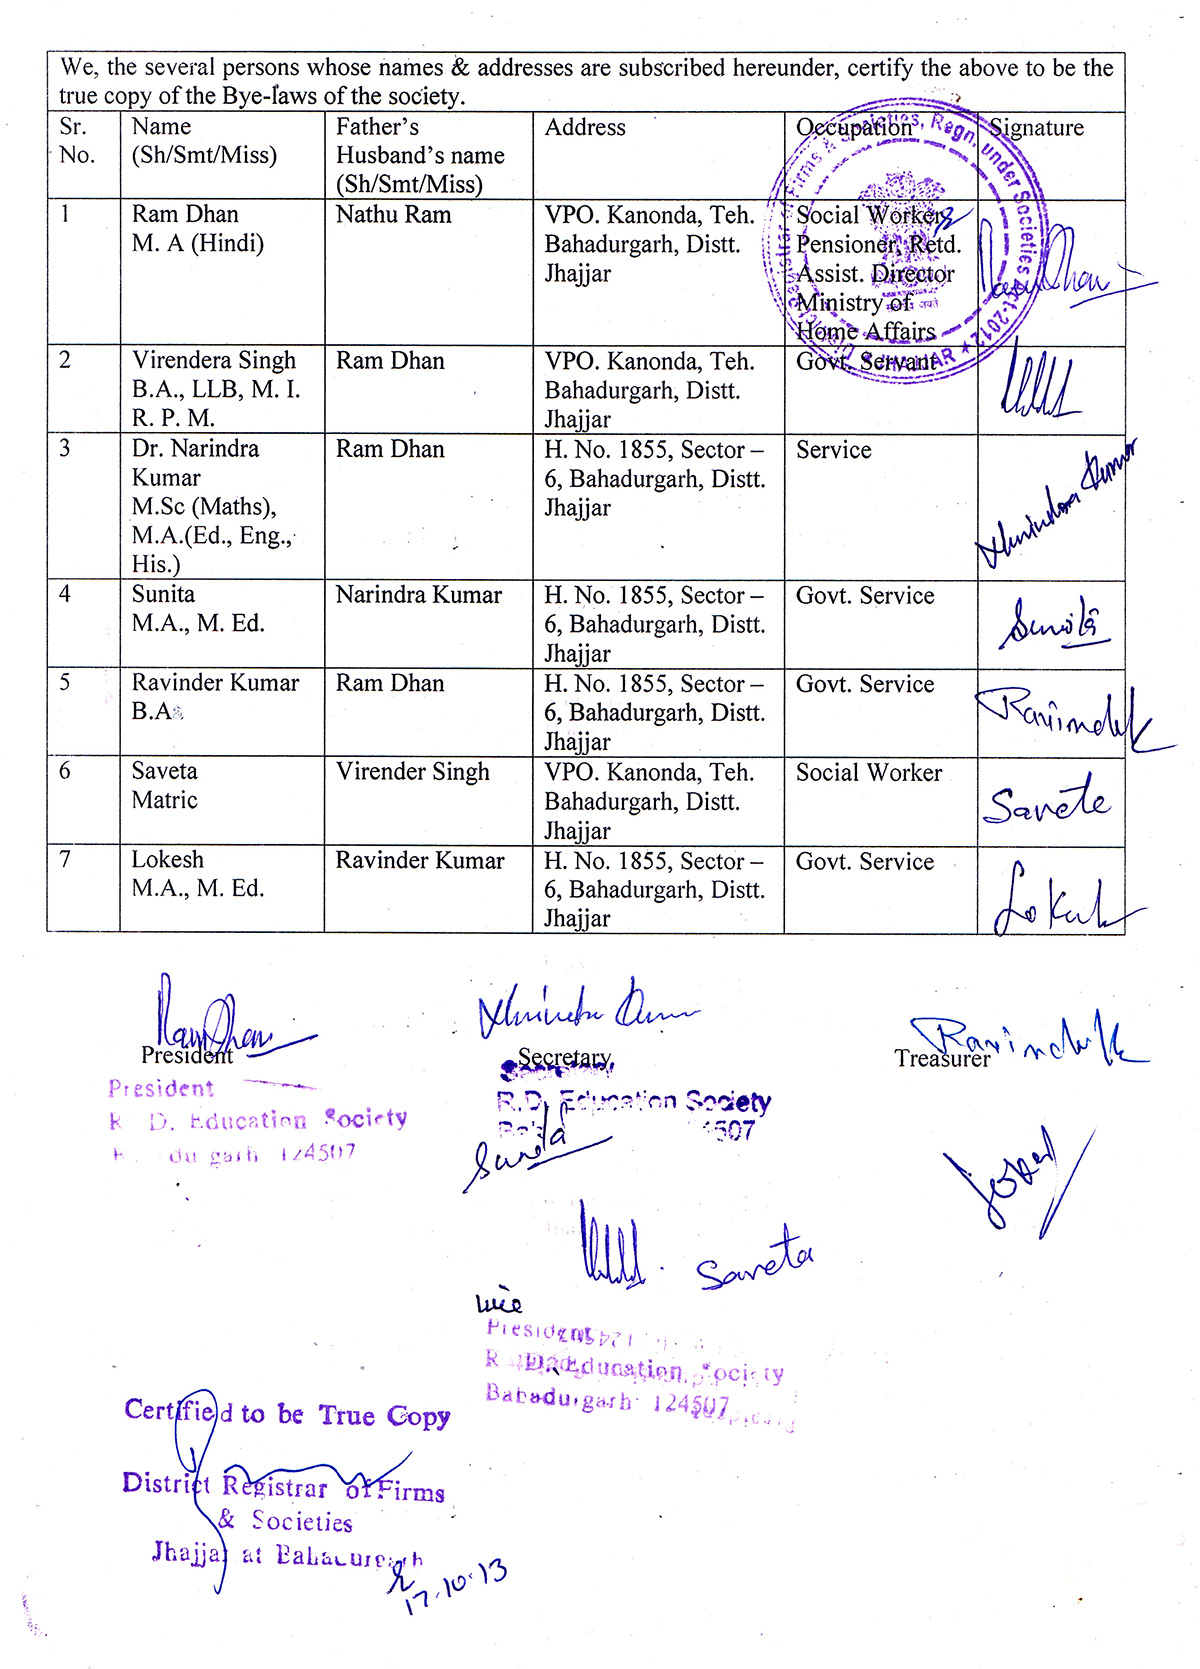 We, the several persons whose names & addresses are subscribed hereunder, certify the above to be the
true copy of the Bye-laws of the society.
Sr. No. Name (Sh/Smt/Miss) Father's Husband's name (Sh/Smt/Miss) Address Occupation Signature
1 Ram Dhan Nathu Ram VPO. Kanonda, Teh. Social Worker
M. A (Hindi) Bahadurgarh, Distt. Pensioner, Retd.
Jhajjar Assist. Director
Ministry of
Home Affairs
Ram Dhan
District Registrar of Firms & Societies, Regn. under Societies Act-2012 ★ JHAJJAR ★
2 Virendera Singh Ram Dhan VPO. Kanonda, Teh. Govt. Servant
B.A., LLB, M. I. Bahadurgarh, Distt.
R. P. M. Jhajjar
3 Dr. Narindra Ram Dhan H. No. 1855, Sector – Service
Kumar 6, Bahadurgarh, Distt.
M.Sc (Maths), Jhajjar
M.A.(Ed., Eng.,
His.)
Narindra Kumar
4 Sunita Narindra Kumar H. No. 1855, Sector – Govt. Service
M.A., M. Ed. 6, Bahadurgarh, Distt. Sunita
Jhajjar
5 Ravinder Kumar Ram Dhan H. No. 1855, Sector – Govt. Service
B.A 6, Bahadurgarh, Distt.
Jhajjar
6 Saveta Virender Singh VPO. Kanonda, Teh. Social Worker
Matric Bahadurgarh, Distt. Saveta
Jhajjar
7 Lokesh Ravinder Kumar H. No. 1855, Sector – Govt. Service
M.A., M. Ed. 6, Bahadurgarh, Distt. Lokesh
Jhajjar
Ram Dhan Narindra Kumar
President Secretary, Treasurer
President Secretary
R. D. Education Society R.D. Education Society
124507
Sunita
Saveta
vice
President
R. D. Education Society
Bahadurgarh 124507
Certified to be True Copy
District Registrar of Firms
& Societies
Jhajjar at Bahadurgarh
17.10.13